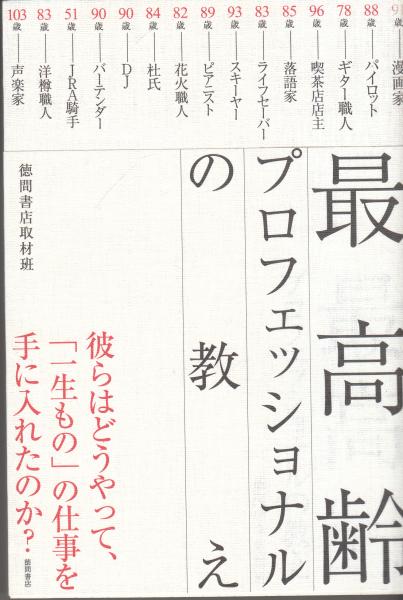 歳――漫画家
88歳――パイロット
78歳――ギター職人
96歳――喫茶店店主
85歳――落語家
83歳――ライフセーバー
93歳――スキーヤー
89歳――ピアニスト
82歳――花火職人
84歳――杜氏
90歳――DJ
90歳――バーテンダー
51歳――JRA騎手
83歳――洋樽職人
103歳――声楽家
最高齢
プロフェッショナル
の教え
徳間書店取材班
彼らはどうやって、
「一生もの」の仕事を
手に入れたのか?
徳間書店